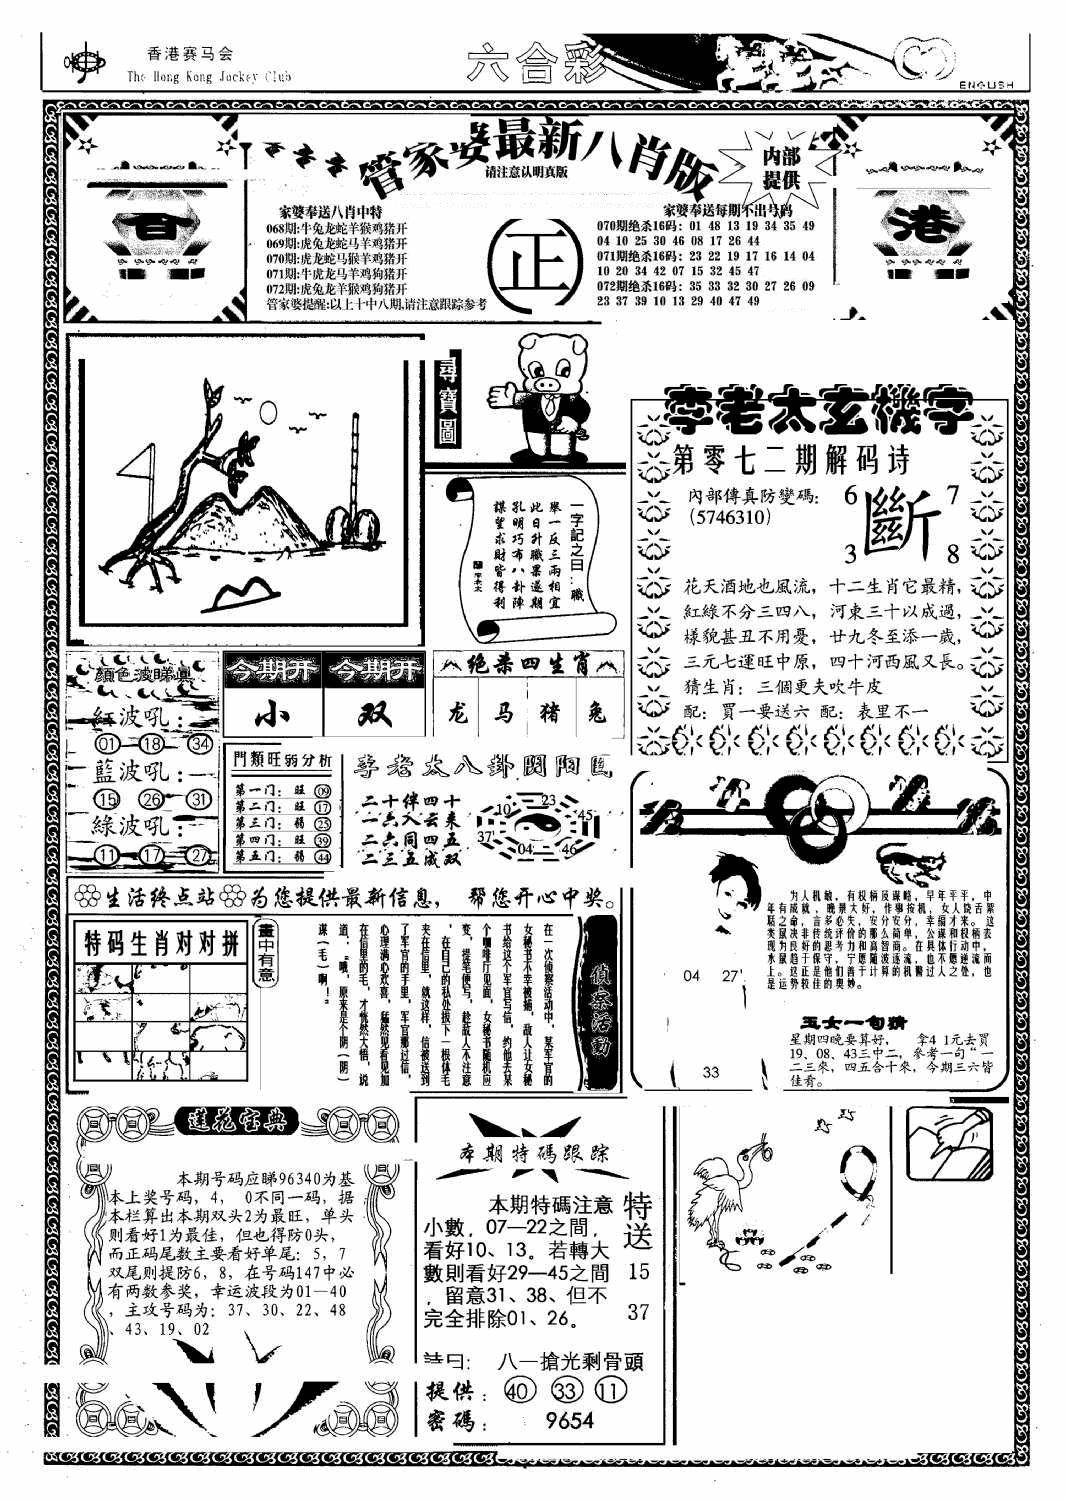 香港赛马会
The Hong Kong Jockey Club
六合彩
ENGLISH
管家婆最新八肖版
请注意认明真版
内部
提供
百
港
正
家婆奉送八肖中特
068期:牛兔龙蛇羊猴鸡猪开
069期:虎兔龙蛇马羊鸡猪开
070期:虎龙蛇马猴羊鸡猪开
071期:牛虎龙马羊鸡狗猪开
072期:虎兔龙羊猴鸡狗猪开
管家婆提醒:以上十中八期,请注意跟踪参考
家婆奉送每期不出号码
070期绝杀16码: 01 48 13 19 34 35 49
04 10 25 30 46 08 17 26 44
071期绝杀16码: 23 22 19 17 16 14 04
10 20 34 42 07 15 32 45 47
072期绝杀16码: 35 33 32 30 27 26 09
23 37 39 10 13 29 40 47 49
尋寶圖
一字記之曰:職
舉一反三兩相宜
此日升職果逐期
孔明巧布八卦陣
謀望求財皆得利
李老太玄機字
第零七二期解码诗
內部傳真防變碼:
(5746310)
6 7
斷
3 8
花天酒地也風流，十二生肖它最精，
紅綠不分三四八，河東三十以成過，
樣貌甚丑不用憂，廿九冬至添一歲，
三元七運旺中原，四十河西風又長。
猜生肖: 三個更夫吹牛皮
配: 買一要送六 配: 表里不一
顏色波睇真
紅波吼:
01 18 34
藍波吼:
15 26 31
綠波吼:
11 17 27
今期开 今期开
小 双
绝杀四生肖
龙 马 猪 兔
門類旺弱分析
第一门: 旺 09
第二门: 旺 17
第三门: 弱 25
第四门: 旺 39
第五门: 弱 44
李老太八卦
二十伴四十
一六入云来
二六同四五
二三五成双
10 23 45
37 04 46
生活终点站 为您提供最新信息， 帮您开心中奖。
特码生肖对对拼
畫中有意
偵察活動
在一次侦察活动中，某军官的
女秘书不幸被捕，敌人让女秘
书给这个军官写信，约他去某
个咖啡厅见面，女秘书随机应
变，提笔便写，趁敌人不注意
，在自己的私处拔下一根体毛
夹在信里，就这样，信被送到
了军官的手里，军官那过信，
心理满心欢喜，猛然见看见加
在信里的毛，才恍然大悟，说
道，“哦，原来是个阴(阴)
谋(毛)啊！”
04 27
33
为人机敏，有权柄及谋略，早年平平，中
年有成就，晚景大好，作事按机，女人饶舌絮
聒之命，言多必失，安分安分，幸福才来。这
类鼠决非传统评价的那么简单，公谋和权柄表
现为良好的思考力和高智商。在具体行动中，
水鼠趋于保守，宁愿随波逐流，也不愿逆流而
上。这正是他们善于计算的机智过人之处，也
是运势较佳的奥妙。
玉女一句猜
星期四晚要算好， 拿4 1元去買
19、08、43三中二，參考一句“一
二三來，四五合十來，今期三六皆
佳肴。
蓮花宝典
本期号码应睇96340为基
本上奖号码，4， 0不同一码，据
本栏算出本期双头2为最旺，单头
则看好1为最佳，但也得防0头，
而正码尾数主要看好单尾：5，7
双尾则提防6，8，在号码147中必
有两数参奖，幸运波段为01—40
，主攻号码为：37、30、22、48
、43、19、02
本期特碼跟踪
本期特碼注意
小數，07—22之間，
看好10、13。若轉大
數則看好29—45之間
，留意31、38、但不
完全排除01、26。
特送
15
37
诗曰: 八一搶光剩骨頭
提供: 40 33 11
密碼: 9654